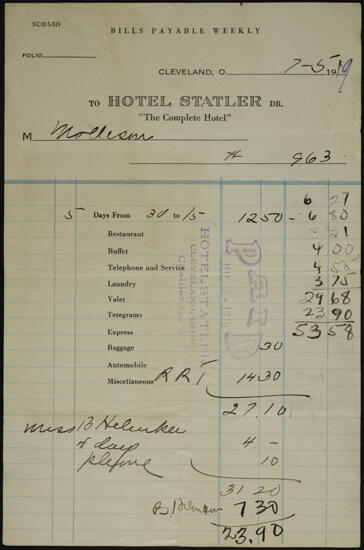 NC32-5-519
BILLS PAYABLE WEEKLY
FOLIO
CLEVELAND, O. 7-5 1919
TO HOTEL STATLER DR.
"The Complete Hotel"
M Mollison
# 963
6 27
5 Days From 30 to 15 12 50 - 6 80
Restaurant 51
Buffet 4 00
Telephone and Service 4
Laundry 3 75
Valet 29 68
Telegrams 23 90
Express 53 58
Baggage 30
Automobile
Miscellaneous R R T 14 30
27.10
HOTEL STATLER
CLEVELAND, OHIO
PAID
Miss B Helenker
day 4 -
phone 10
31 20
7 30
23.90